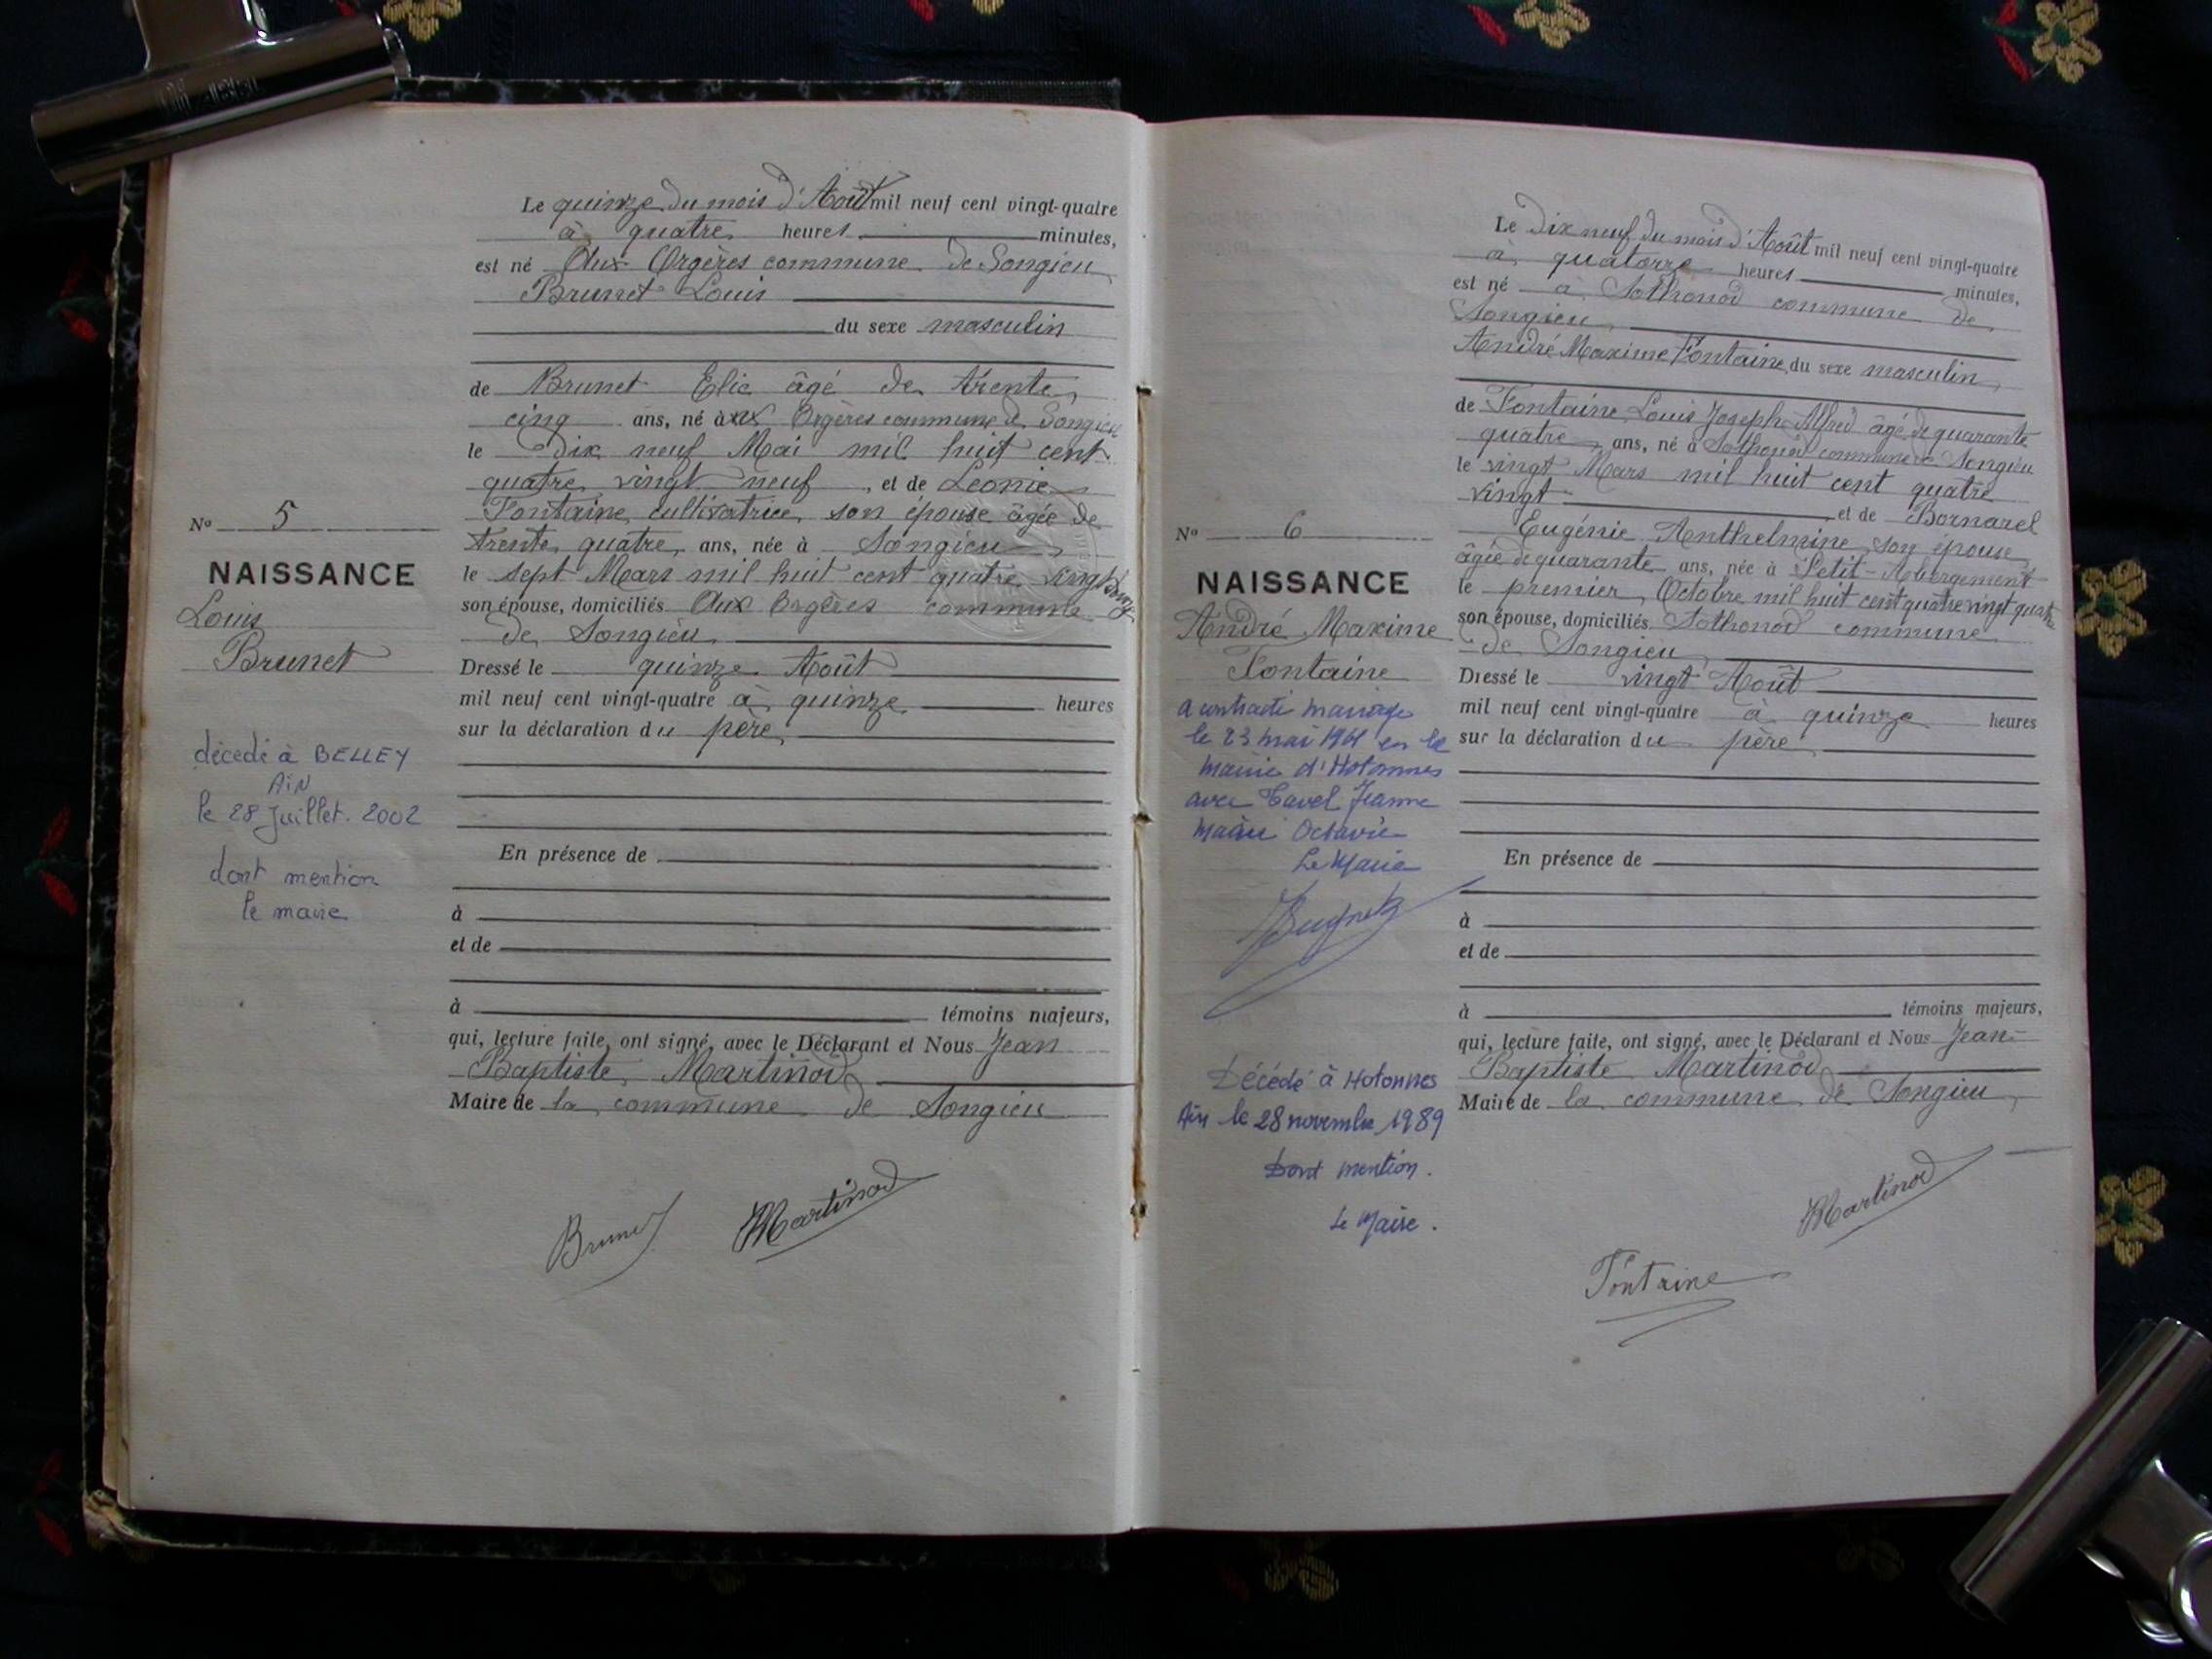 Le quinze du mois d'Août mil neuf cent vingt-quatre
à quatre heures minutes,
est né Aux Orgères commune de Songieu
Brunet Louis
du sexe masculin
de Brunet Elie âgé de trente
cinq ans, né à aux Orgères commune de Songieu
le dix neuf Mai mil huit cent
quatre vingt neuf, et de Léonie
Fontaine, cultivatrice, son épouse âgée de
trente quatre, ans, née à Songieu
le sept Mars mil huit cent quatre vingt
son épouse, domiciliés Aux Orgères commune
de Songieu
Dressé le quinze Août
mil neuf cent vingt-quatre à quinze heures
sur la déclaration du père.
En présence de
à
et de
à témoins majeurs,
qui, lecture faite, ont signé, avec le Déclarant et Nous Jean
Baptiste Martinod
Maire de la commune de Songieu
Brunet
Martinod
No 5
NAISSANCE
Louis
Brunet
décédé à BELLEY
AiN
le 28 Juillet. 2002
dont mention
le maire
Le Dix neuf du mois d'Août mil neuf cent vingt-quatre
à quatorze heures minutes,
est né à Sothonod commune de
Songieu
André Maxime Fontaine, du sexe masculin,
de Fontaine Louis Joseph Alfred âgé de quarante
quatre, ans, né à Sothonod commune de Songieu
le vingt Mars mil huit cent quatre
vingt et de Bornarel
Eugénie Anthelmine, son épouse
âgée de quarante ans, née à Petit-Abergement
le premier Octobre mil huit cent quatre vingt quatre
son épouse, domiciliés Sothonod commune
de Songieu
Dressé le vingt Août
mil neuf cent vingt-quatre à quinze heures
sur la déclaration du père
En présence de
à
et de
à témoins majeurs,
qui, lecture faite, ont signé, avec le Déclarant et Nous Jean-
Baptiste Martinod
Maire de la commune de Songieu
Martinod
Fontaine
No 6
NAISSANCE
André Maxime
Fontaine
a contracté mariage
le 23 mai en la
mairie d'Hotonnes
avec Jeanne
Octavie
Le Maire
Décédé à Hotonnes
Ain le 28 novembre 1989
Dont mention.
Le Maire.